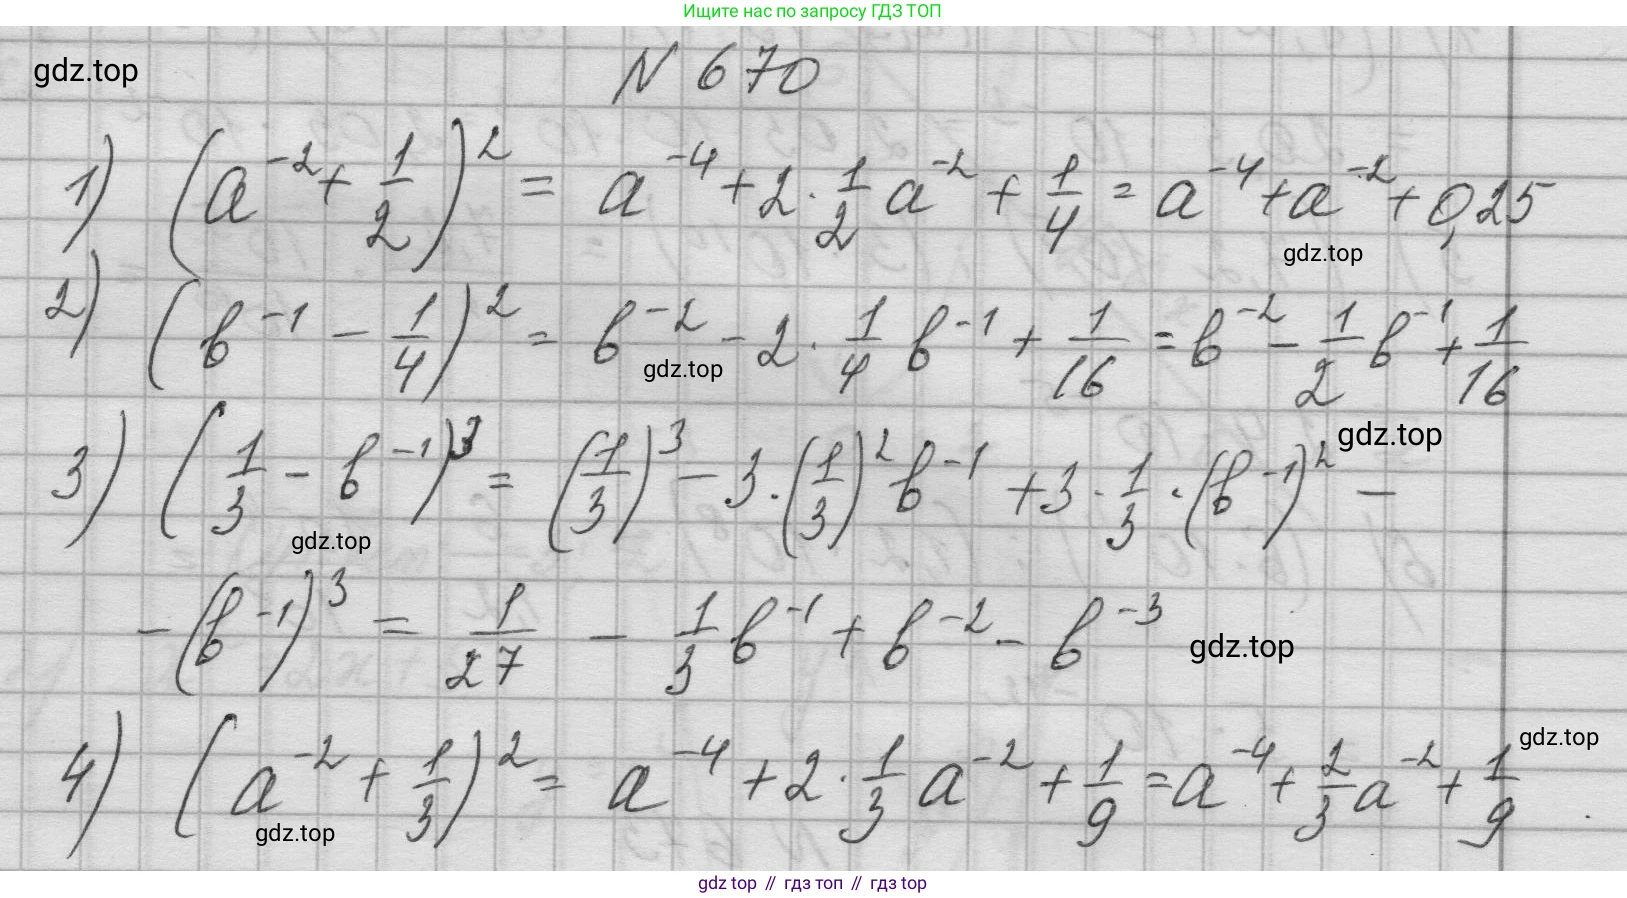 Ищите нас по запросу ГДЗ ТОП
gdz.top
N 670
1) (a^{-2} + 1/2)^2 = a^{-4} + 2 · 1/2 a^{-2} + 1/4 = a^{-4} + a^{-2} + 0,25
gdz.top
2) (b^{-1} − 1/4)^2 = b^{-2} − 2 · 1/4 b^{-1} + 1/16 = b^{-2} − 1/2 b^{-1} + 1/16
gdz.top
gdz.top
3) (1/3 − b^{-1})^3 = (1/3)^3 − 3 · (1/3)^2 b^{-1} + 3 · 1/3 · (b^{-1})^2 −
gdz.top
− (b^{-1})^3 = 1/27 − 1/3 b^{-1} + b^{-2} − b^{-3}
gdz.top
gdz.top
4) (a^{-2} + 1/3)^2 = a^{-4} + 2 · 1/3 a^{-2} + 1/9 = a^{-4} + 2/3 a^{-2} + 1/9
gdz.top
gdz top // гдз топ // гдз top